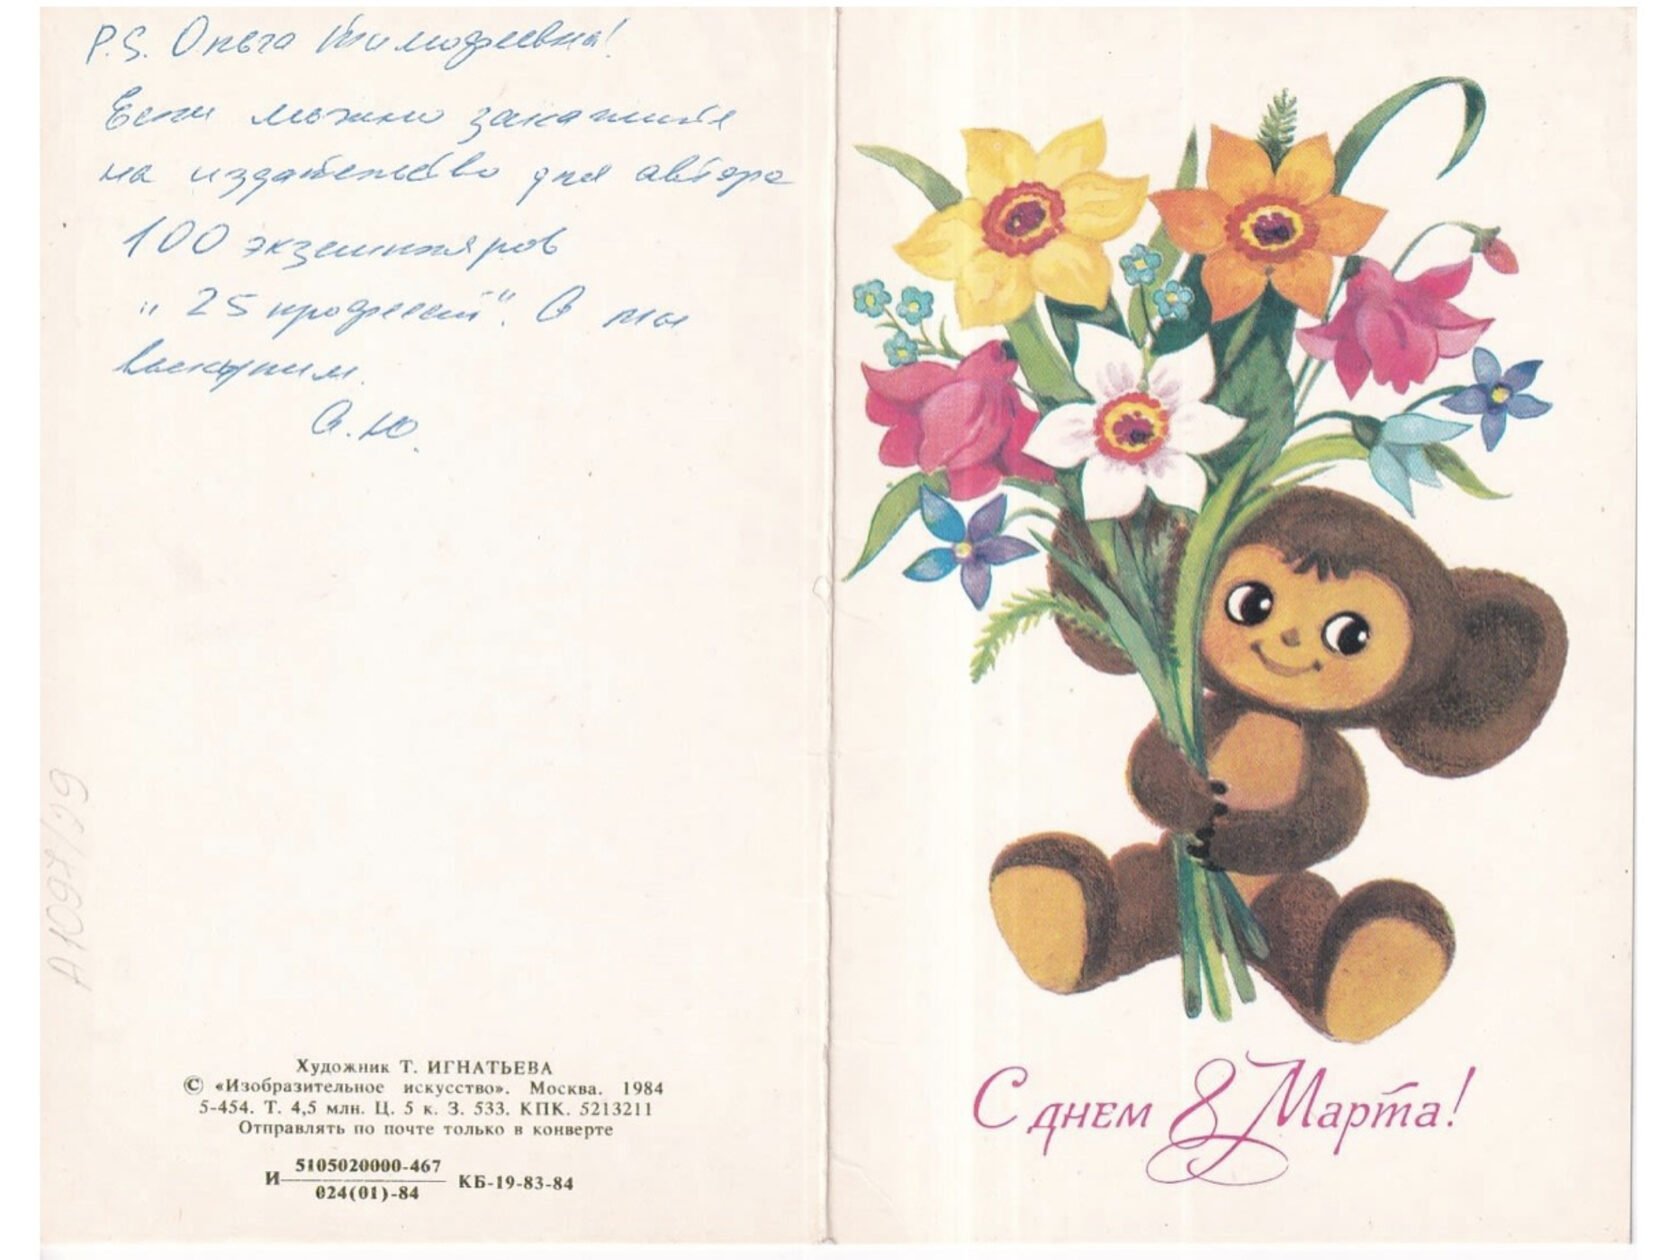 P.S. Ольга Тимофеевна!
Если можно закажите
на издательство для автора
100 экземпляров
"25 профессий". А мы
выкупим.
А.Ю.
А1097/39
Художник Т. ИГНАТЬЕВА
© «Изобразительное искусство». Москва. 1984
5-454. Т. 4,5 млн. Ц. 5 к. З. 533. КПК. 5213211
Отправлять по почте только в конверте
И 5105020000-467
024(01)-84
КБ-19-83-84
С днем 8 Марта!